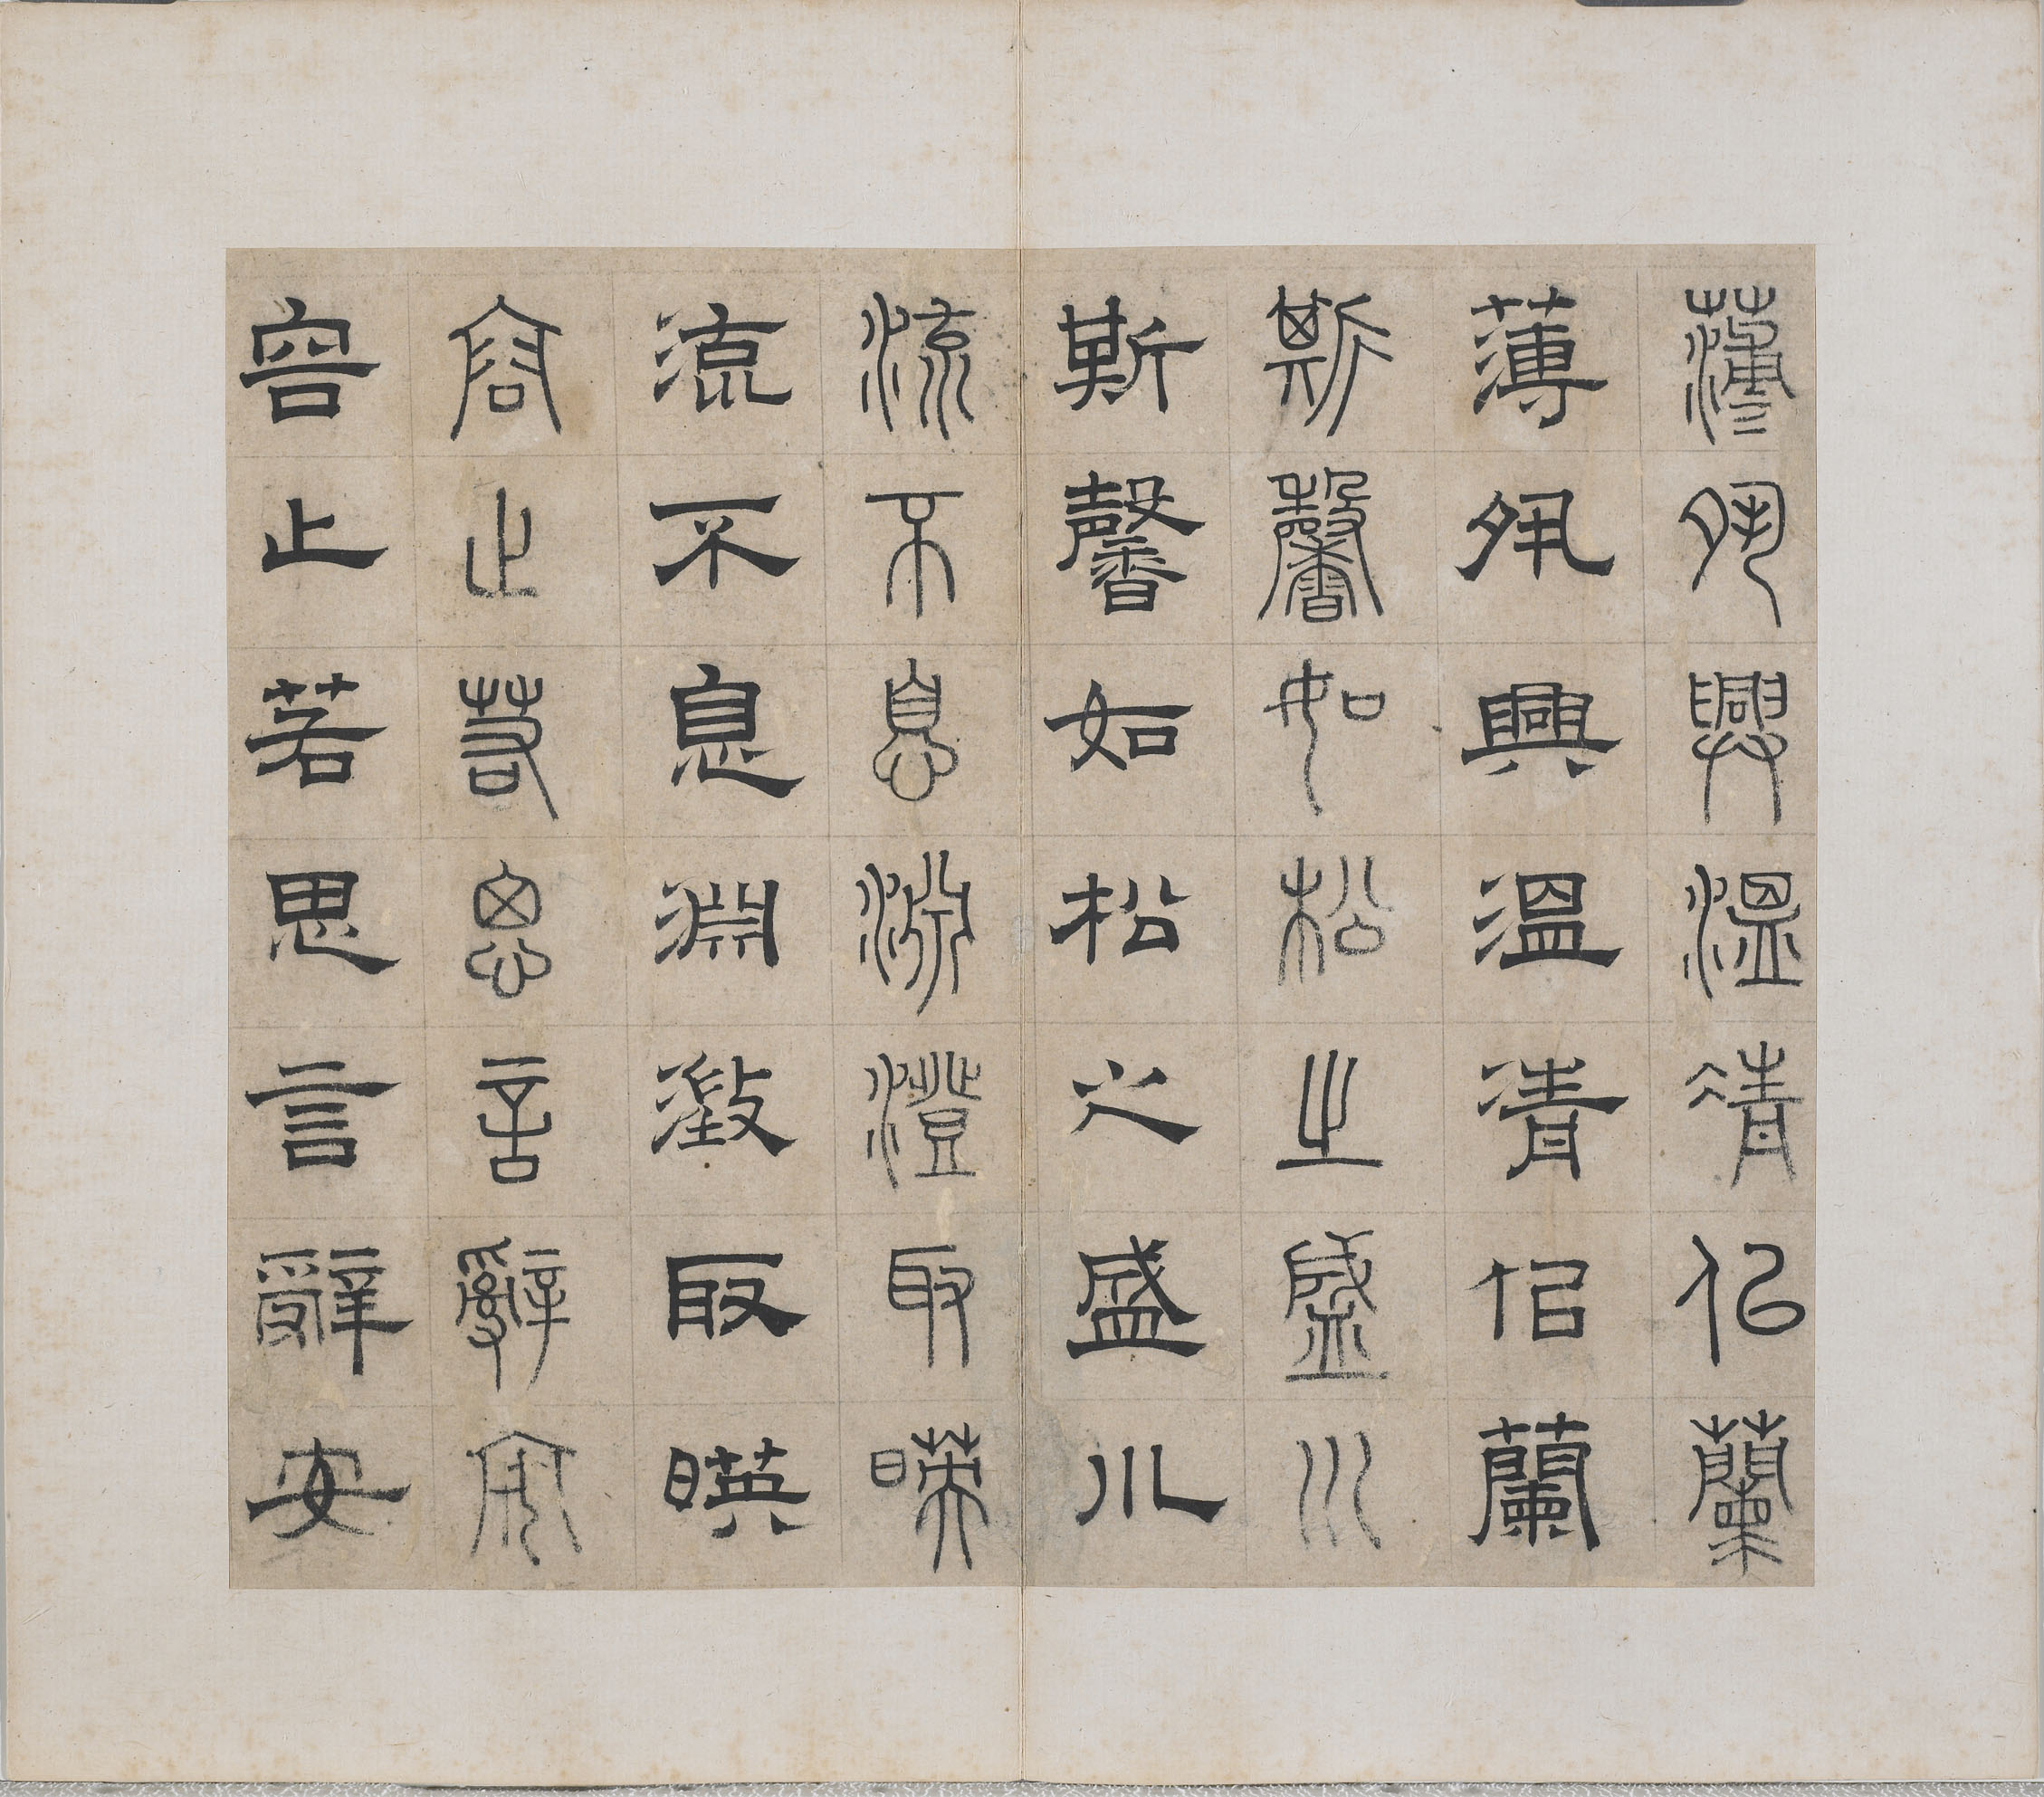 薄夙興溫凊佀蘭
薄夙興溫清佀蘭
斯馨如松之盛川
斯馨如松之盛川
流不息淵澄取暎
流不息淵澂取暎
容止若思言辭安
容止若思言辭安